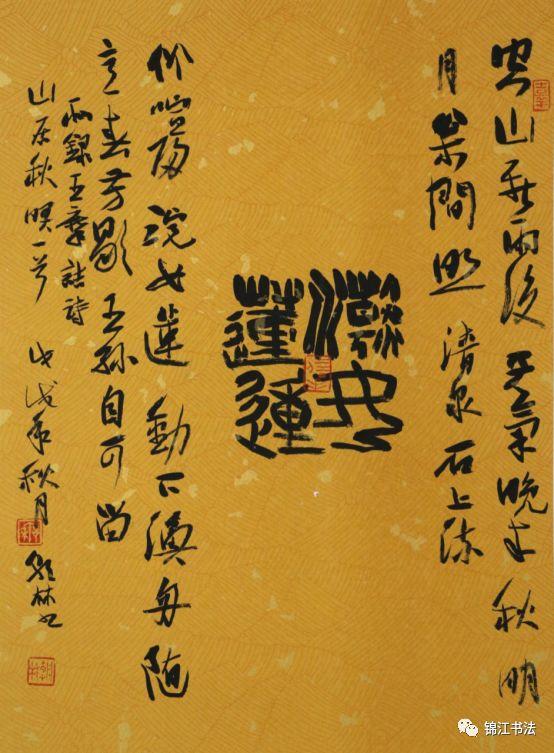 空山新雨後天氣晚来秋明
月枩間照清泉石上流
竹喧歸浣女蓮動下漁舟随
意春芳歇王孫自可留
右録王摩詰詩
山居秋暝一首戊戌年秋月
锦江书法